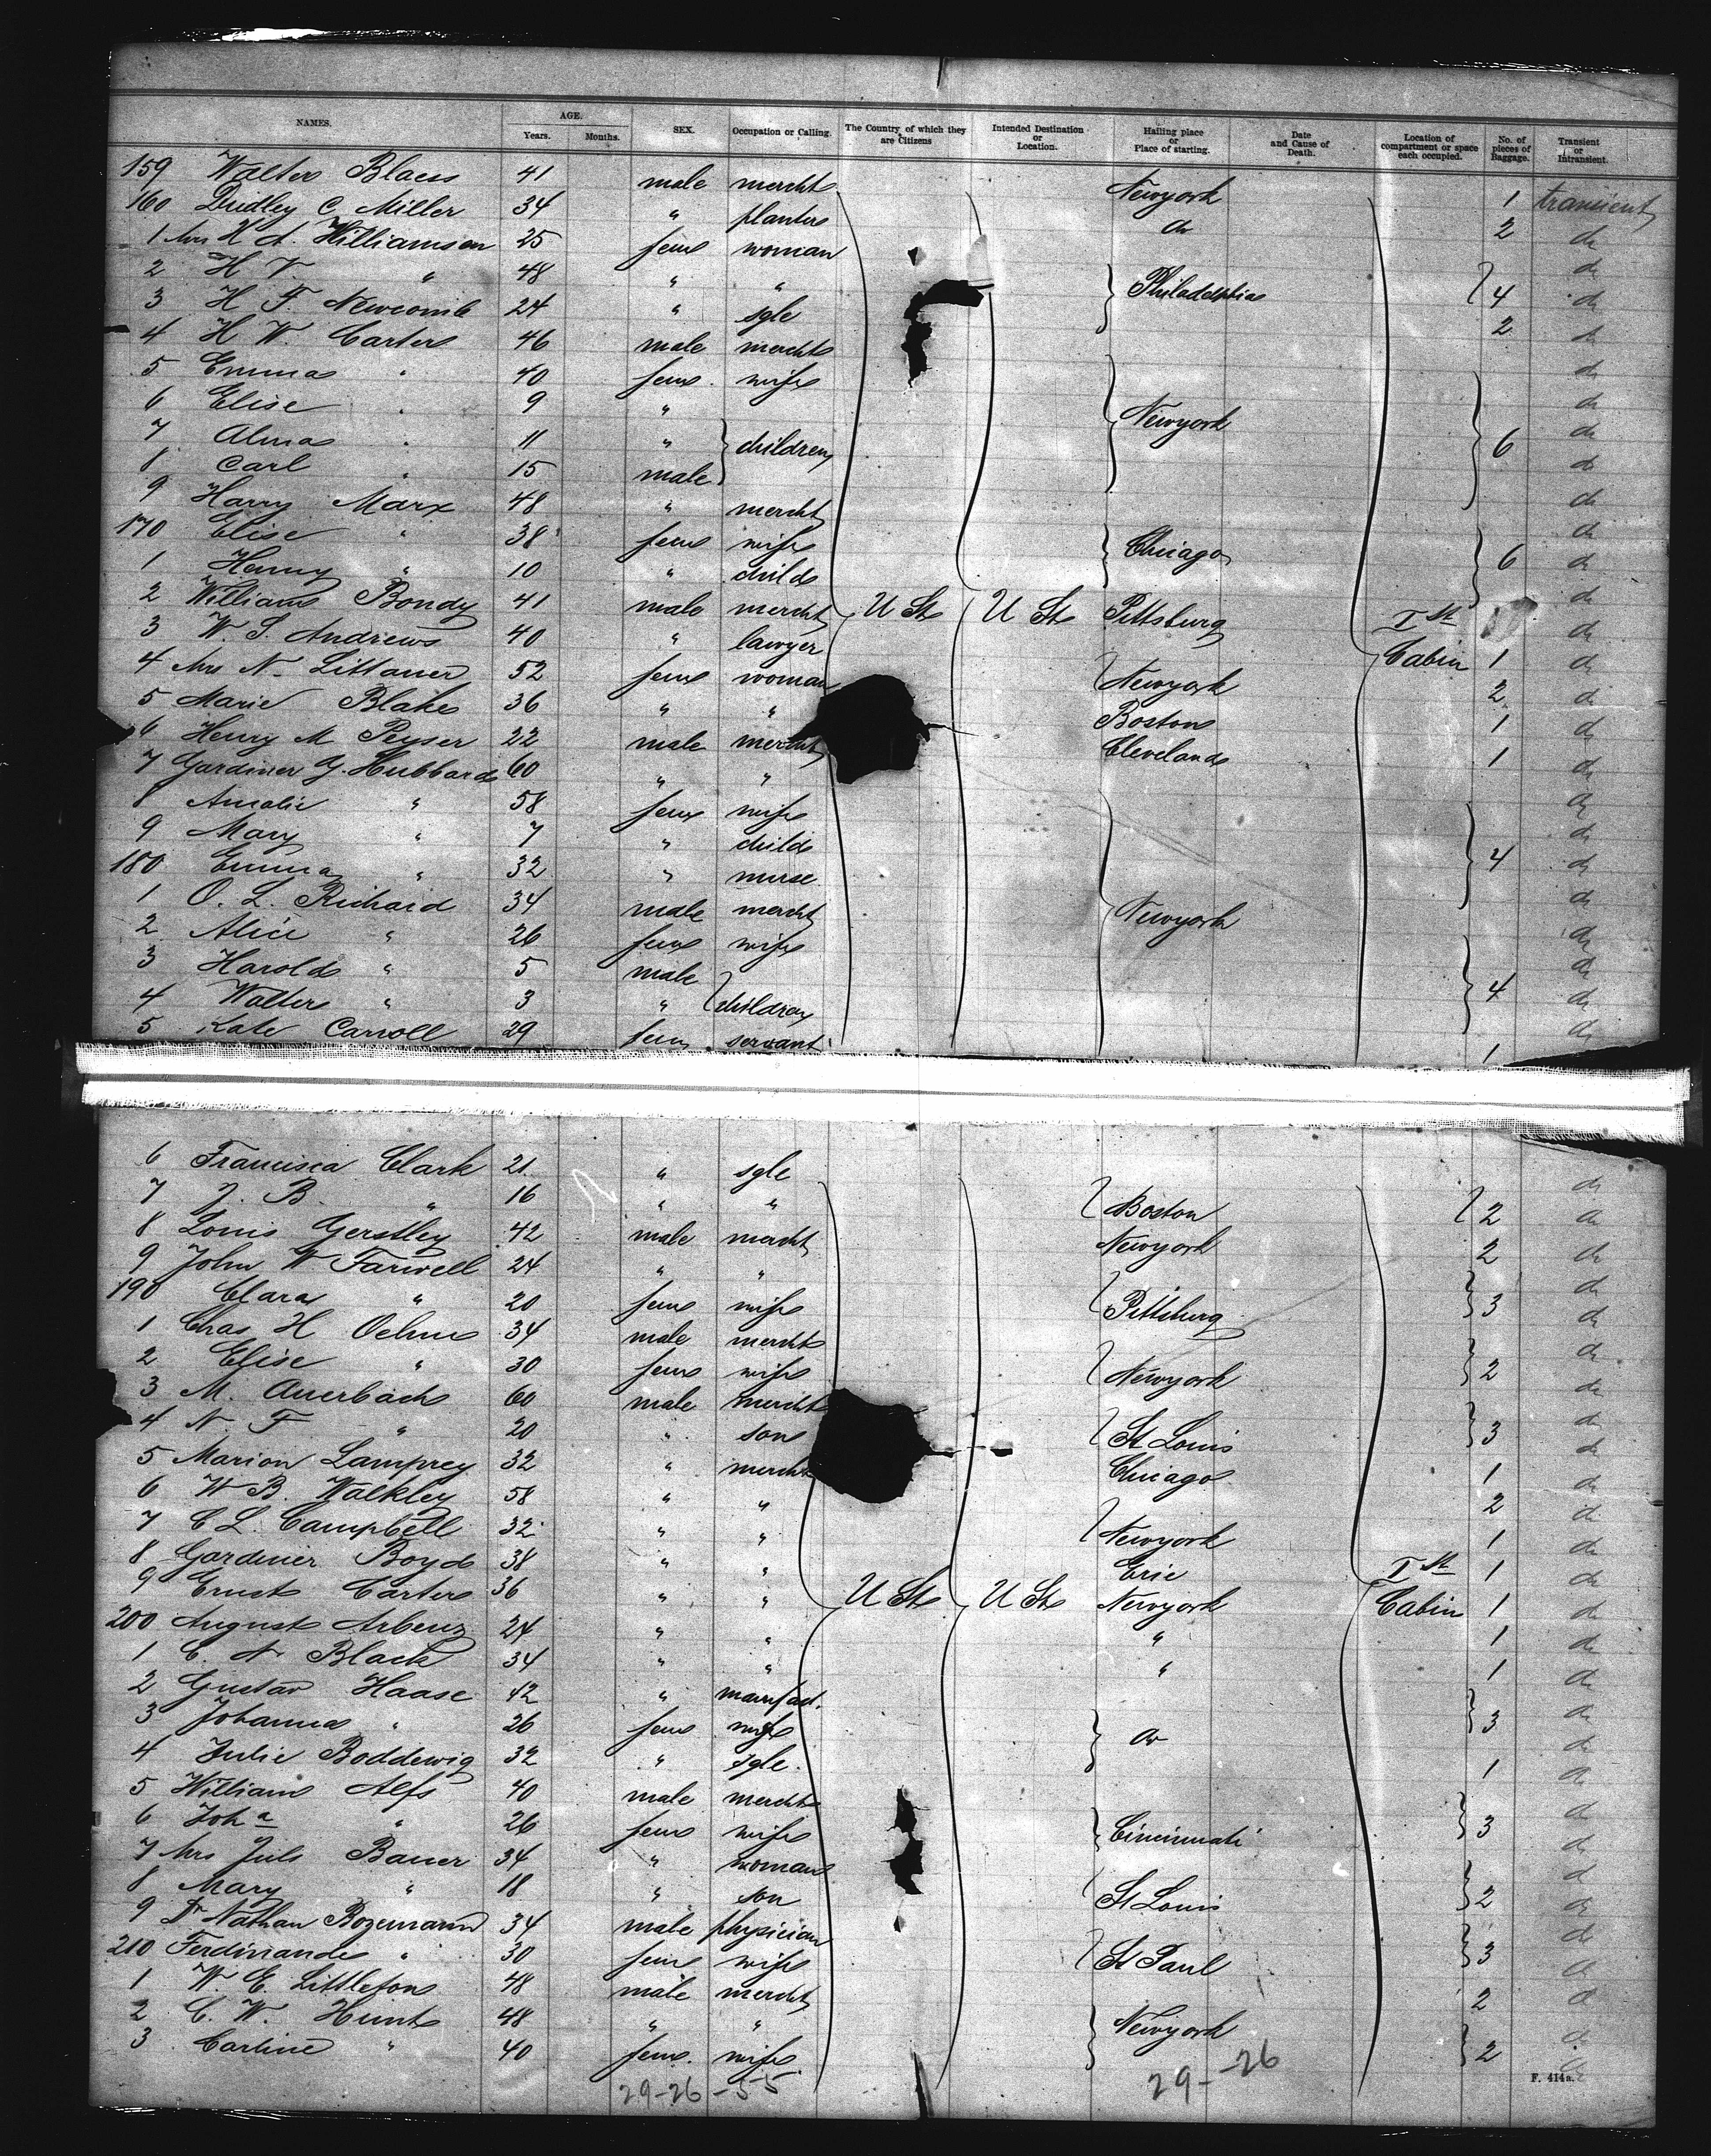 NAMES. AGE. Years. Months. SEX. Occupation or Calling. The Country of which they are Citizens Intended Destination or Location. Hailing place or Place of starting. Date and Cause of Death. Location of compartment or space each occupied. No. of pieces of Baggage. Transient or Intransient.
159 Walter Blaess 41 male mercht Newyork 1 transient
160 Dudley C Miller 34 " planter do 2 do
1 Mrs H A. Williamson 25 fem woman do
2 H V. " 48 " " Philadelphia 4 do
3 H F. Newcomb 24 " sgle 2 do
4 H W. Carter 46 male mercht do
5 Emma " 40 fem. wife do
6 Elise " 9 " Newyork do
7 Alma " 11 " children 6 do
8 Carl " 15 male do
9 Harry Marx 48 " mercht do
170 Elise " 38 fem wife Chicago do
1 Henny " 10 " child 6 do
2 William Bondy 41 male mercht U St U St Pittsburg Ist do
3 W. S. Andrews 40 " lawyer Cabin 1 do
4 Mrs N. Littauer 52 fem woman Newyork 2 do
5 Marie Blake 36 " " Boston 1 do
6 Henry M Peyser 22 male mercht Cleveland 1 do
7 Gardiner G. Hubbard 60 " " do
8 Amalie " 58 fem wife do
9 Mary " 7 " child do
180 Emma " 32 " nurse 4 do
1 O. L. Richard 34 male mercht Newyork do
2 Alice " 26 fem wife do
3 Harold " 5 male do
4 Walter " 3 " children 4 do
5 Kate Carroll 29 fem servant 1 do
6 Francisca Clark 21 " sgle do
7 J. B. " 16 " " Boston 2 do
8 Louis Gerstley 42 male mercht Newyork 2 do
9 John W Farwell 24 " " do
190 Clara " 20 fem wife Pittsburg 3 do
1 Chas H Oelm 34 male mercht do
2 Elise " 30 fem wife Newyork 2 do
3 M. Auerbach 60 male mercht do
4 N. F. " 20 " son St Louis 3 do
5 Marion Lamprey 32 " mercht Chicago 1 do
6 W B. Walkley 58 " " 2 do
7 C L. Campbell 32 " " Newyork 1 do
8 Gardiner Boyd 38 " " Erie Ist 1 do
9 Ernst Carter 36 " " U St U St Newyork Cabin 1 do
200 August Arbenz 24 " " " 1 do
1 C. N. Black 34 " " " 1 do
2 Gustav Haase 42 " manufact. do
3 Johanna " 26 fem wife do 3 do
4 Julie Boddewig 32 " sgle. 1 do
5 William Alfs 40 male mercht do
6 Joha " 26 fem wife Cincinnati 3 do
7 Mrs Juls Bauer 34 " woman do
8 Mary " 18 " son St Louis 2 do
9 Dr Nathan Bozemann 34 male physician do
210 Ferdinande " 30 fem wife St Paul 3 do
1 W. E. Littleton 48 male mercht 2 do
2 C. W. Hunt 48 " " Newyork do
3 Carline " 40 fem. wife 2 do
29-26-55 29--26 F. 414a.